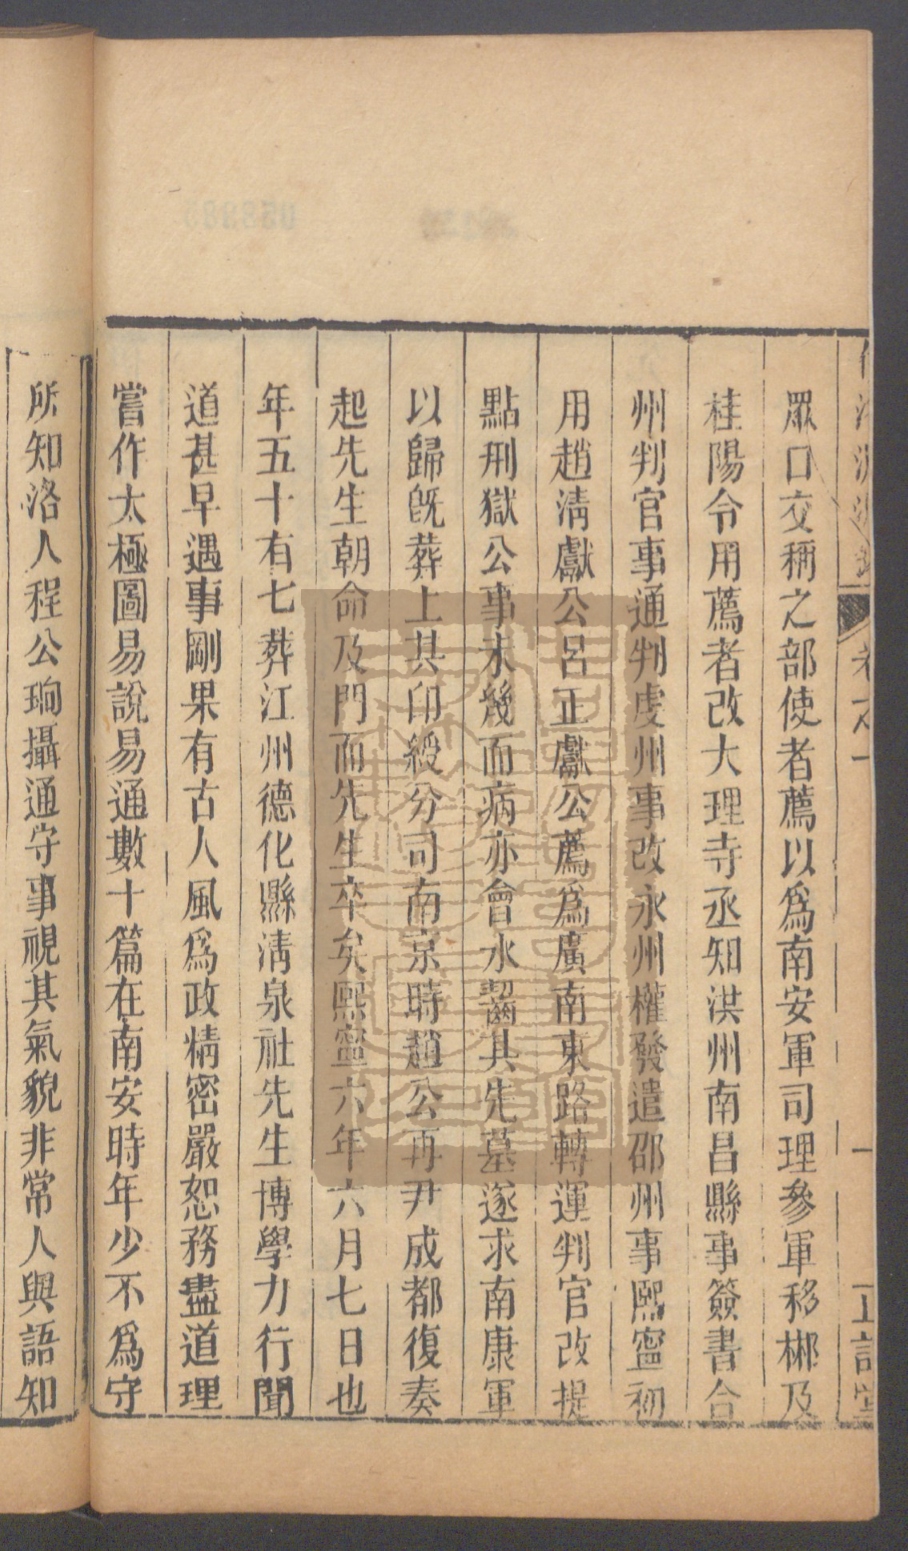 卷之一
一
正誼堂
眾口交稱之部使者薦以爲南安軍司理參軍移郴及
桂陽令用薦者改大理寺丞知洪州南昌縣事簽書合
州判官事通判虔州事改永州權發遣邵州事熙寧初
用趙清獻公呂正獻公薦爲廣南東路轉運判官改提
點刑獄公事未幾而病亦會水齧其先墓遂求南康軍
以歸旣葬上其印綬分司南京時趙公再尹成都復奏
起先生朝命及門而先生卒矣熙寧六年六月七日也
年五十有七葬江州德化縣清泉社先生博學力行聞
道甚早遇事剛果有古人風爲政精密嚴恕務盡道理
嘗作太極圖易說易通數十篇在南安時年少不爲守
所知洛人程公珦攝通守事視其氣貌非常人與語知